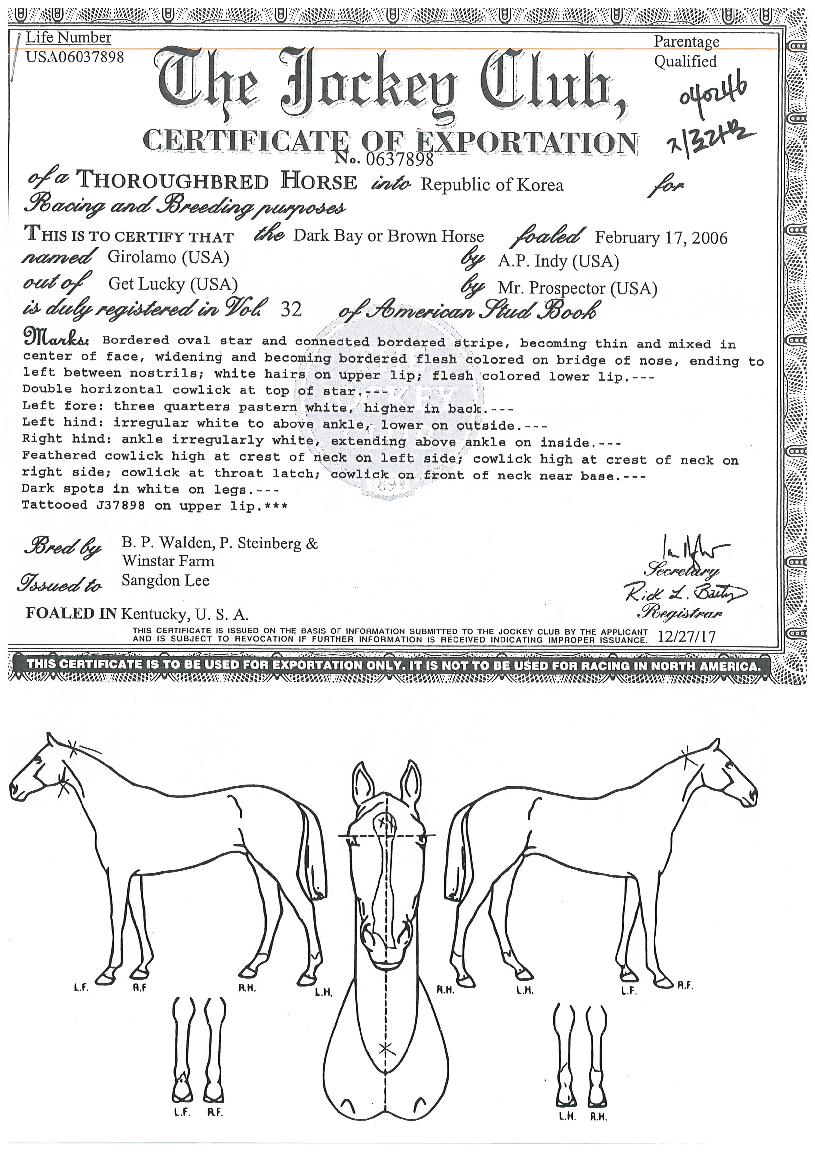 Life Number
USA06037898
Parentage
Qualified
The Jockey Club,
040246
지로라모
CERTIFICATE OF EXPORTATION
No. 0637898
of a THOROUGHBRED HORSE into Republic of Korea for
Racing and Breeding purposes
THIS IS TO CERTIFY THAT the Dark Bay or Brown Horse foaled February 17, 2006
named Girolamo (USA) by A.P. Indy (USA)
out of Get Lucky (USA) by Mr. Prospector (USA)
is duly registered in Vol. 32 of American Stud Book
Marks: Bordered oval star and connected bordered stripe, becoming thin and mixed in
center of face, widening and becoming bordered flesh colored on bridge of nose, ending to
left between nostrils; white hairs on upper lip; flesh colored lower lip.---
Double horizontal cowlick at top of star.---
Left fore: three quarters pastern white, higher in back.---
Left hind: irregular white to above ankle, lower on outside.---
Right hind: ankle irregularly white, extending above ankle on inside.---
Feathered cowlick high at crest of neck on left side; cowlick high at crest of neck on
right side; cowlick at throat latch; cowlick on front of neck near base.---
Dark spots in white on legs.---
Tattooed J37898 on upper lip.***
JOCKEY
Bred by B. P. Walden, P. Steinberg &
Winstar Farm
Issued to Sangdon Lee
Secretary
Rick L. Bailey
Registrar
FOALED IN Kentucky, U. S. A.
THIS CERTIFICATE IS ISSUED ON THE BASIS OF INFORMATION SUBMITTED TO THE JOCKEY CLUB BY THE APPLICANT
AND IS SUBJECT TO REVOCATION IF FURTHER INFORMATION IS RECEIVED INDICATING IMPROPER ISSUANCE. 12/27/17
THIS CERTIFICATE IS TO BE USED FOR EXPORTATION ONLY. IT IS NOT TO BE USED FOR RACING IN NORTH AMERICA.
L.F. R.F R.H. L.H. R.H. L.H. L.F. R.F.
L.F. R.F. L.H. R.H.